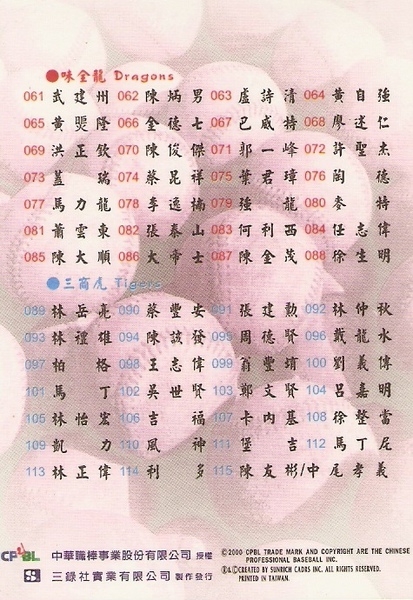 ●味全龍 Dragons
061 武建州 062 陳炳男 063 盧詩清 064 黃自強
065 黃煚隆 066 金德士 067 巴威特 068 廖述仁
069 洪正欽 070 陳俊傑 071 郭一峰 072 許聖杰
073 蓋瑞 074 蔡昆祥 075 葉君璋 076 陶德
077 馬力龍 078 李逸楠 079 強龍 080 麥特
081 蕭雲東 082 張泰山 083 何利西 084 任志偉
085 陳大順 086 大帝士 087 陳金茂 088 徐生明
●三商虎 Tigers
089 林岳亮 090 蔡豐安 091 張建勳 092 林仲秋
093 林禮雄 094 陳該發 095 周德賢 096 戴龍水
097 柏格 098 王志偉 099 翁豐堉 100 劉義傳
101 馬丁 102 吳世賢 103 鄭文賢 104 呂嘉明
105 林怡宏 106 吉福 107 卡內基 108 徐整當
109 凱力 110 風神 111 堡吉 112 馬丁尼
113 林正偉 114 利多 115 陳友彬/中尾孝義
CPBL 中華職棒事業股份有限公司 授權
三錄社實業有限公司 製作發行
©2000 CPBL TRADE MARK AND COPYRIGHT ARE THE CHINESE
PROFESSIONAL BASEBALL INC.
CREATED BY SUNRICH CADRS INC. ALL RIGHTS RESERVED.
PRINTED IN TAIWAN.